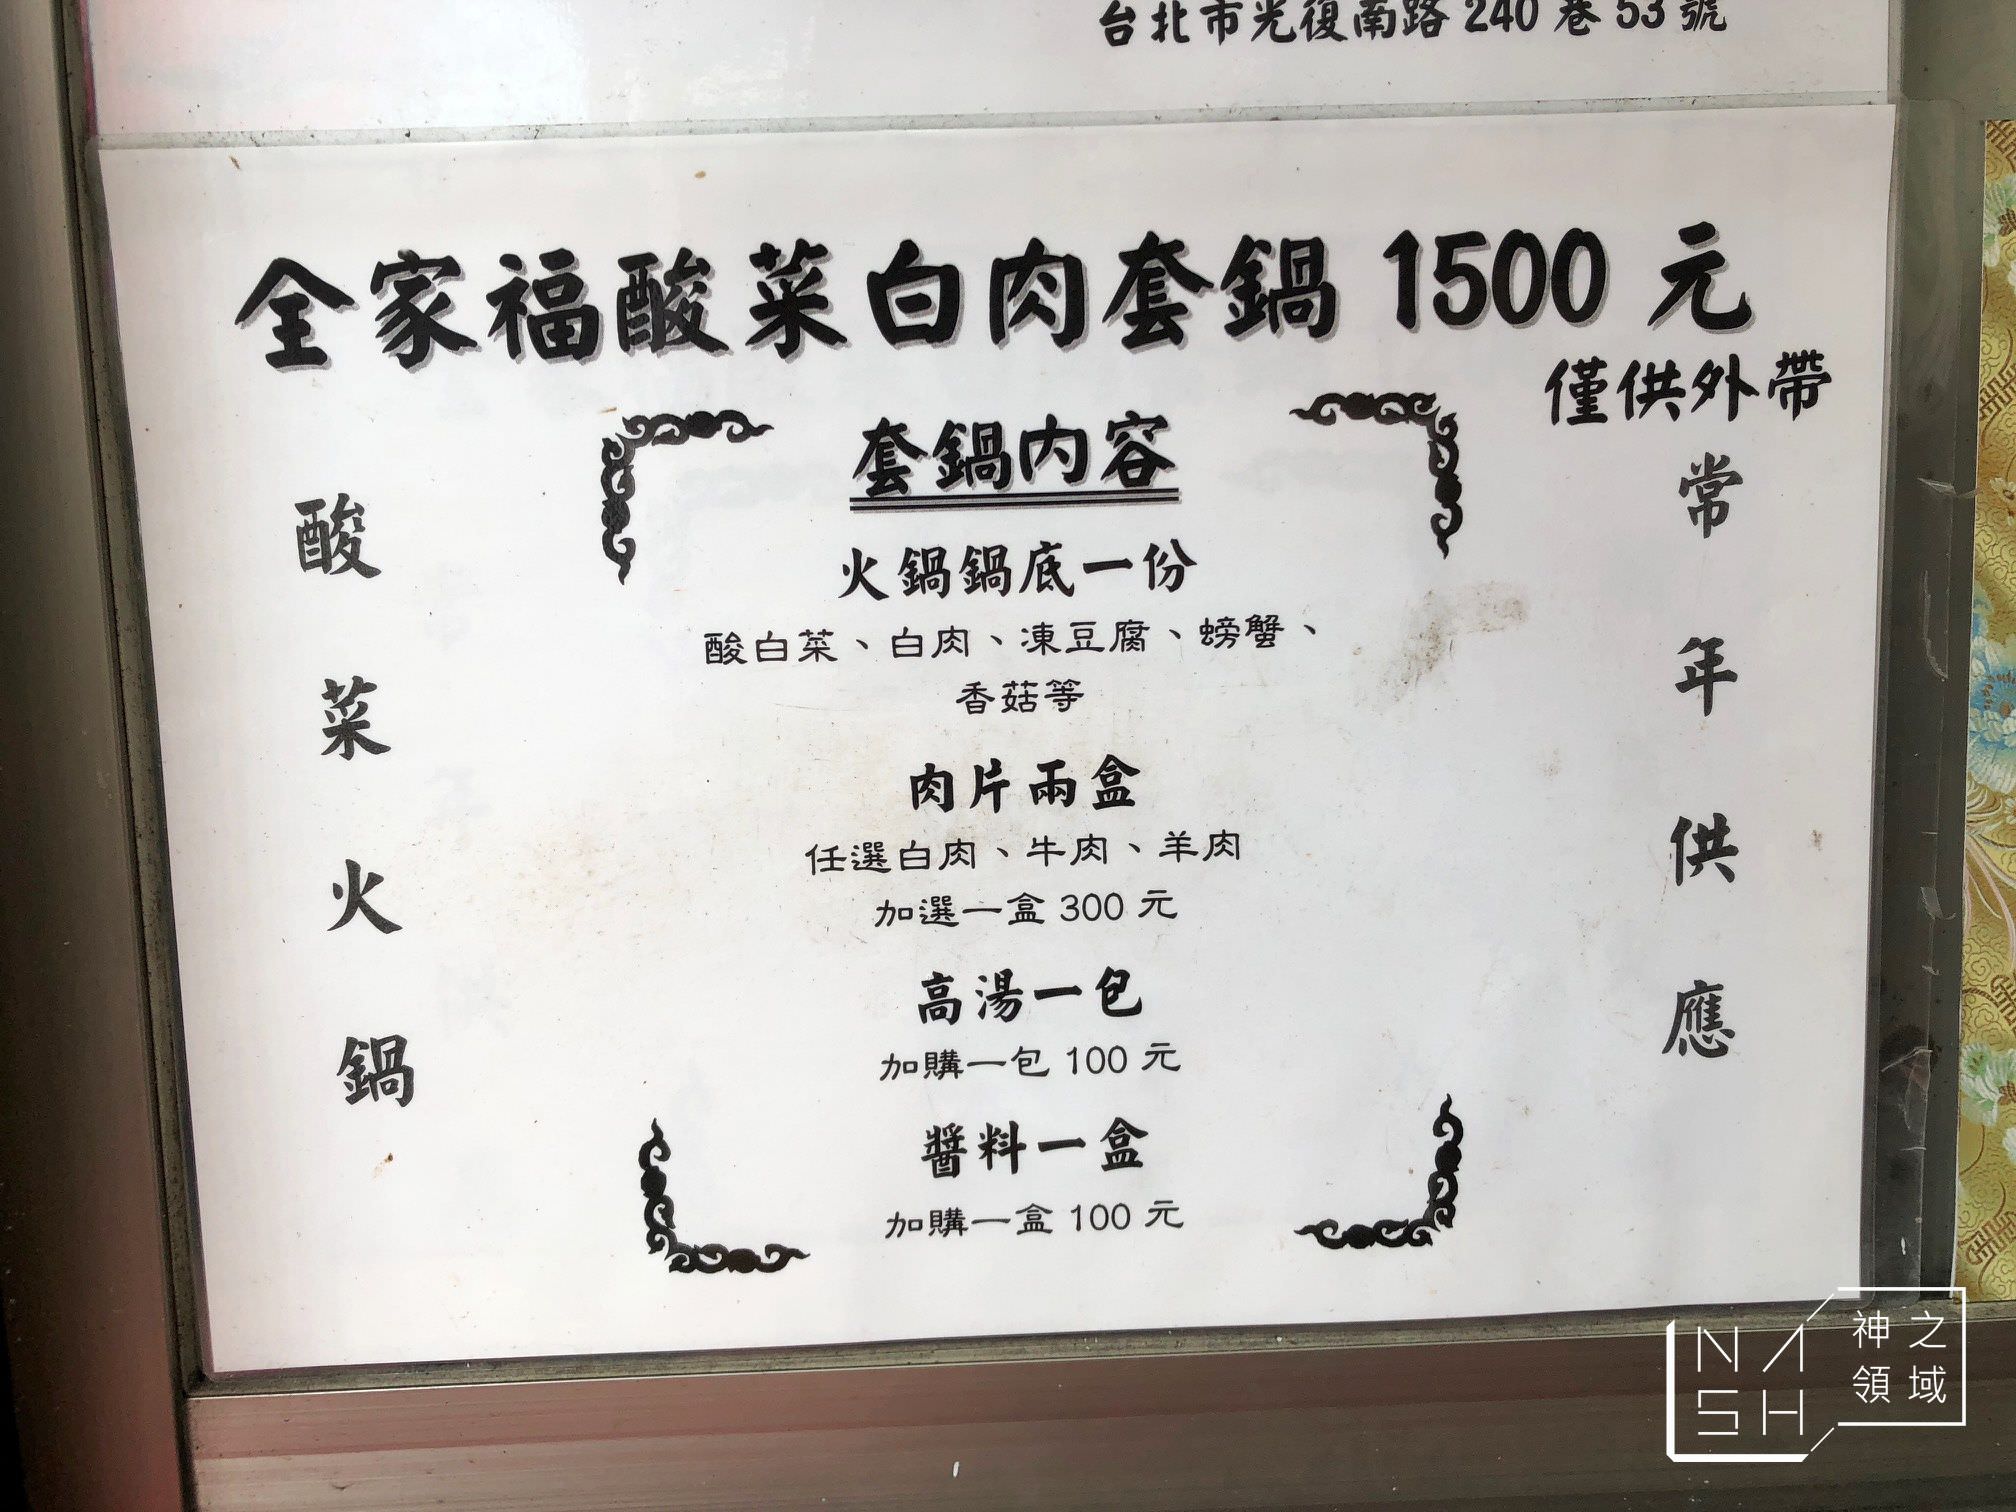 台北市光復南路 240 巷 53 號
全家福酸菜白肉套鍋 1500 元
僅供外帶
酸菜火鍋
套鍋內容
火鍋鍋底一份
酸白菜、白肉、凍豆腐、螃蟹、
香菇等
肉片兩盒
任選白肉、牛肉、羊肉
加選一盒 300 元
高湯一包
加購一包 100 元
醬料一盒
加購一盒 100 元
常年供應
NASH
神之領域